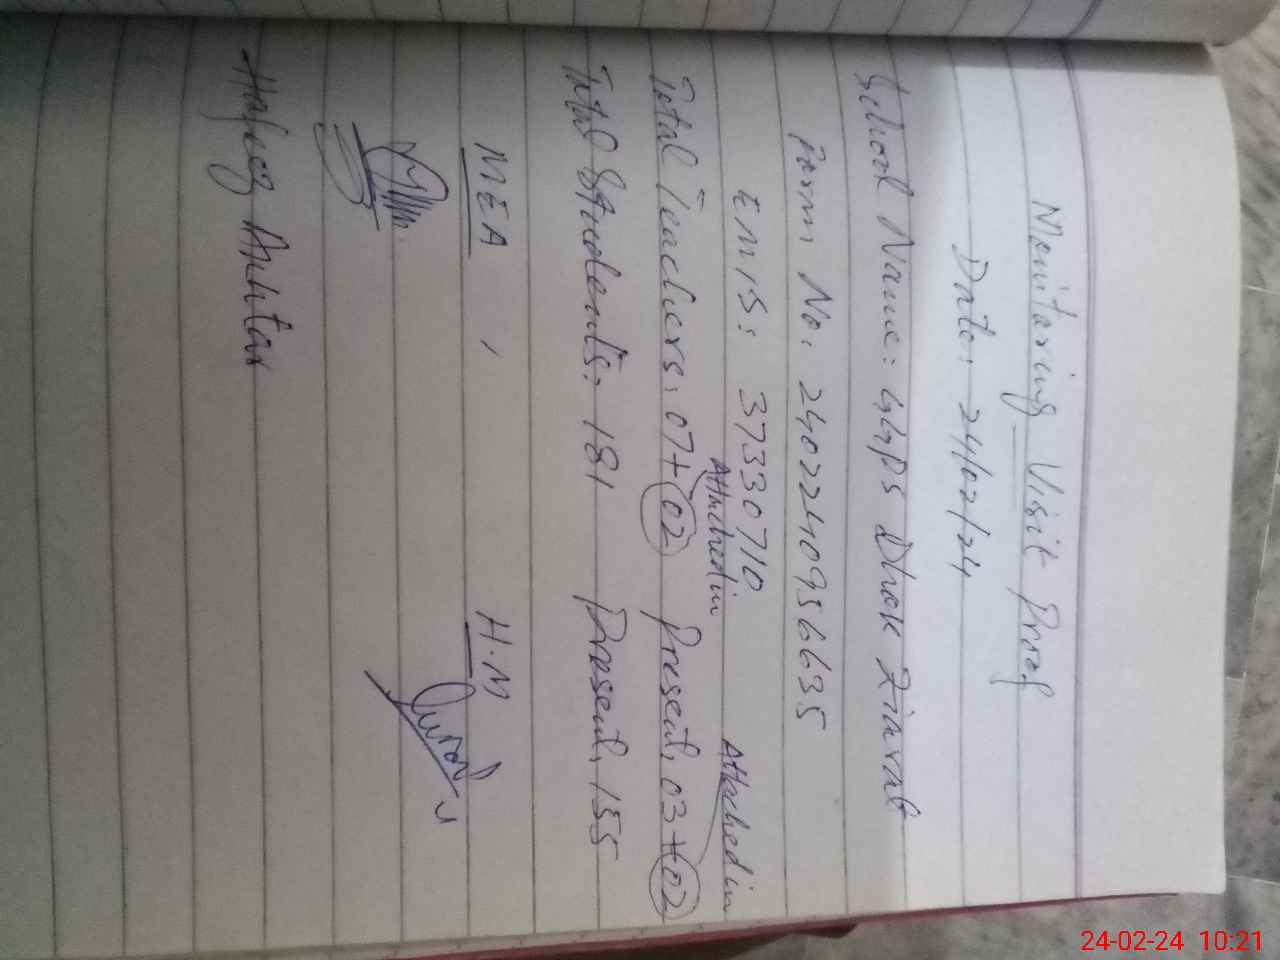 Monitoring Visit Proof
Date: 24/02/24
School Name: GGPS Dhok Ziarat
Form No: 2402240956635
EMIS: 37330710
Attachedin Attachedin
Total Teachers: 07+02 Present, 03+02
Total Students: 181 Present, 155
MEA, H.M
Hafeez Akhtar
24-02-24 10:21